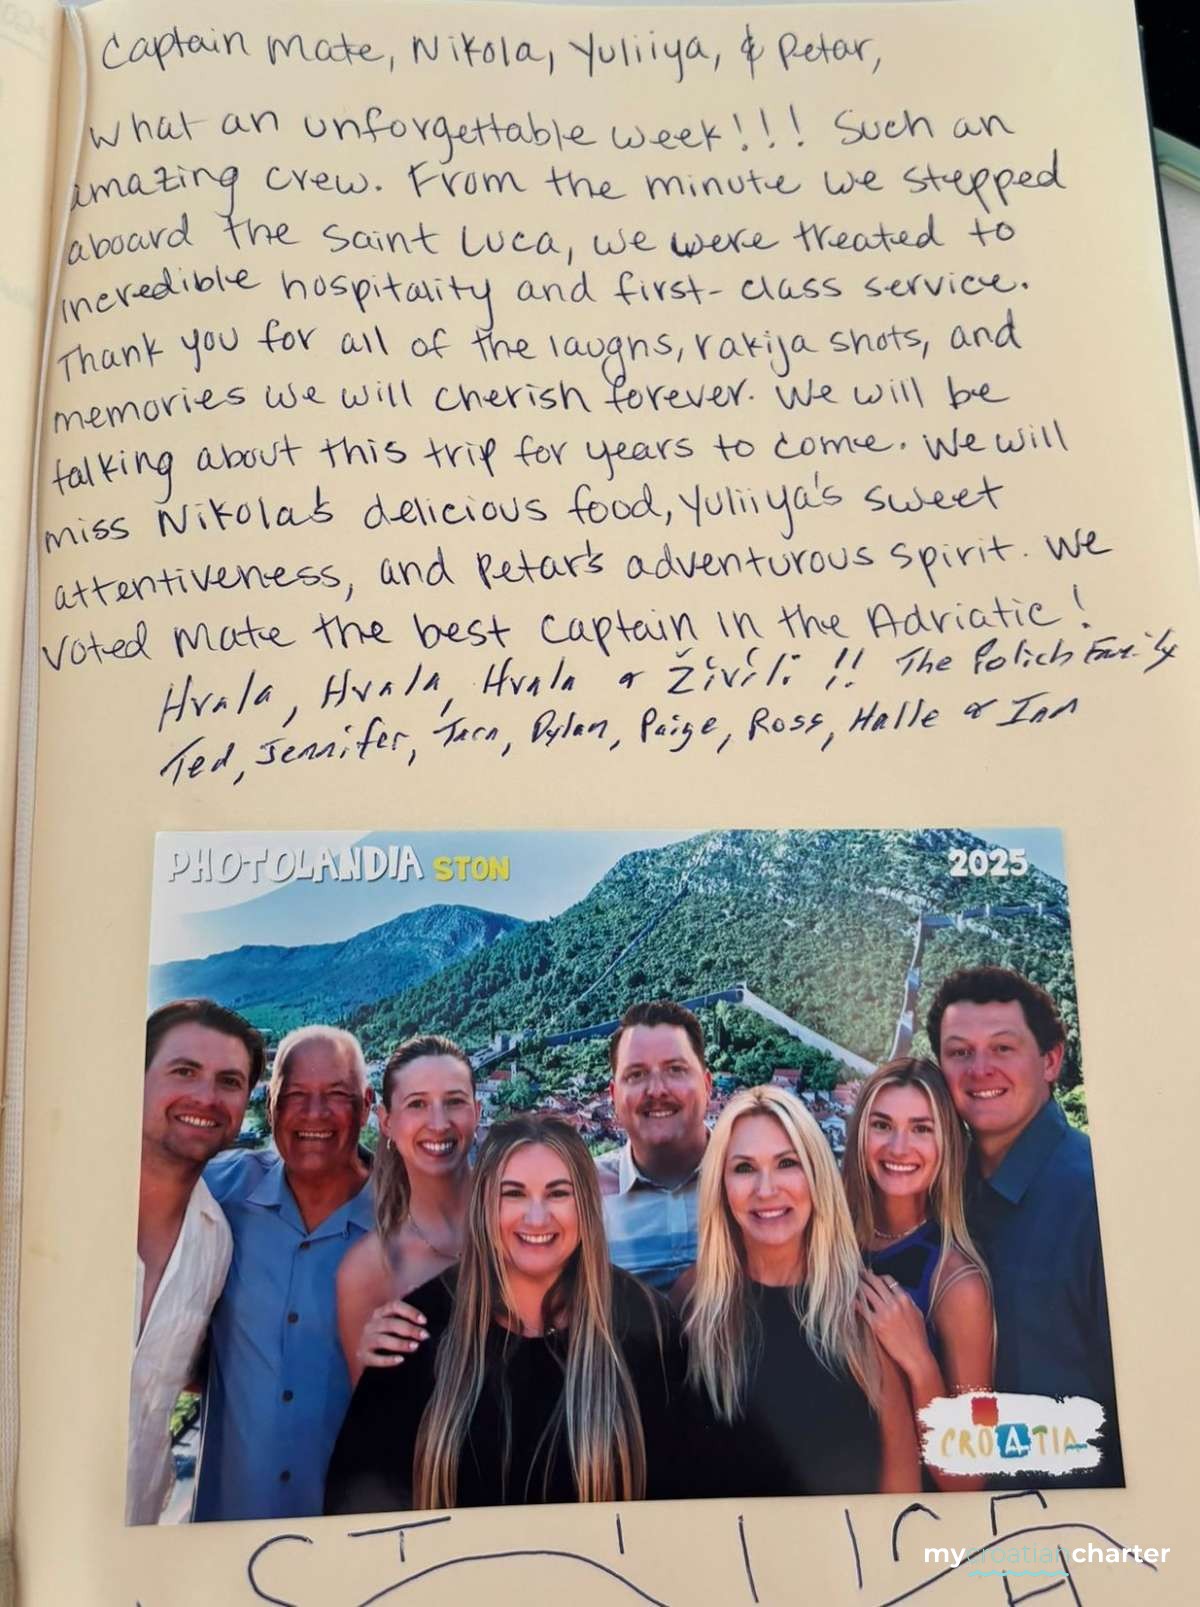 Captain Mate, Nikola, Yuliiya, & Petar,
What an unforgettable week!!! Such an
amazing crew. From the minute we stepped
aboard the Saint Luca, we were treated to
incredible hospitality and first-class service.
Thank you for all of the laughs, rakija shots, and
memories we will cherish forever. We will be
talking about this trip for years to come. We will
miss Nikola's delicious food, Yuliiya's sweet
attentiveness, and Petar's adventurous spirit. We
voted Mate the best Captain in the Adriatic!
Hvala, Hvala, Hvala & Živili!! The Polich Family
Ted, Jennifer, Tara, Dylan, Paige, Ross, Halle & Ian
PHOTOLANDIA STON
2025
CROATIA
ST LUCA
mycroatiancharter